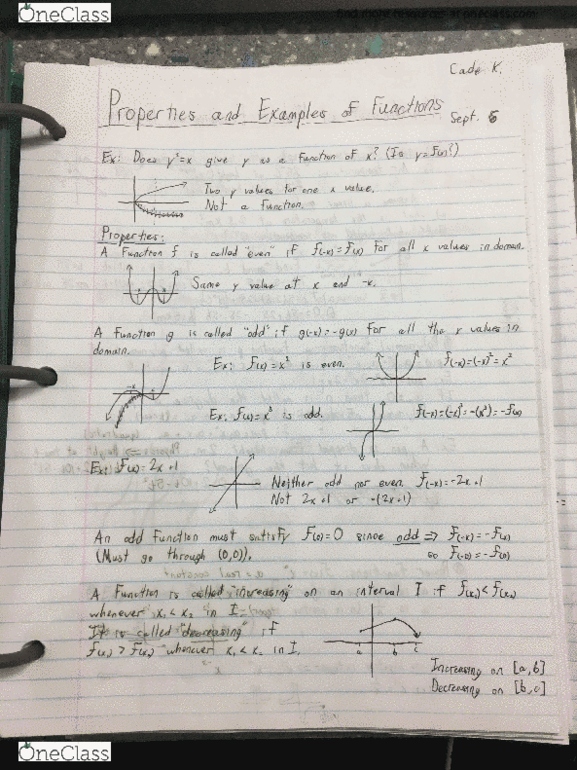 OneClass
find more resources at oneclass.com
Cade K.
Properties and Examples of Functions
Sept. 6
Ex: Does y²=x give y as a function of x? (Is y=f(x)?)
Two y values for one x value.
Not a function.
Properties:
A function f is called "even" if f(-x)=f(x) for all x values in domain.
Same y value at x and -x.
A function g is called "odd" if g(-x)=-g(x) for all the x values in
domain.
Ex: f(x)=x² is even.
f(-x)=(-x)²=x²
Ex: f(x)=x³ is odd.
f(-x)=(-x)³=-(x³)=-f(x)
Ex: f(x)=2x+1
Neither odd nor even. f(-x)=-2x+1
Not 2x+1 or -(2x+1)
An odd function must satisfy f(0)=0 since odd ⇒ f(-x)=-f(x)
(Must go through (0,0)). so f(-0)=-f(0)
A function is called "increasing" on an interval I if f(x₁)<f(x₂)
whenever x₁<x₂ in I.
It is called "decreasing" if
f(x₁)>f(x₂) whenever x₁<x₂ in I.
a b c
Increasing on [a,b]
Decreasing on [b,c]
OneClass